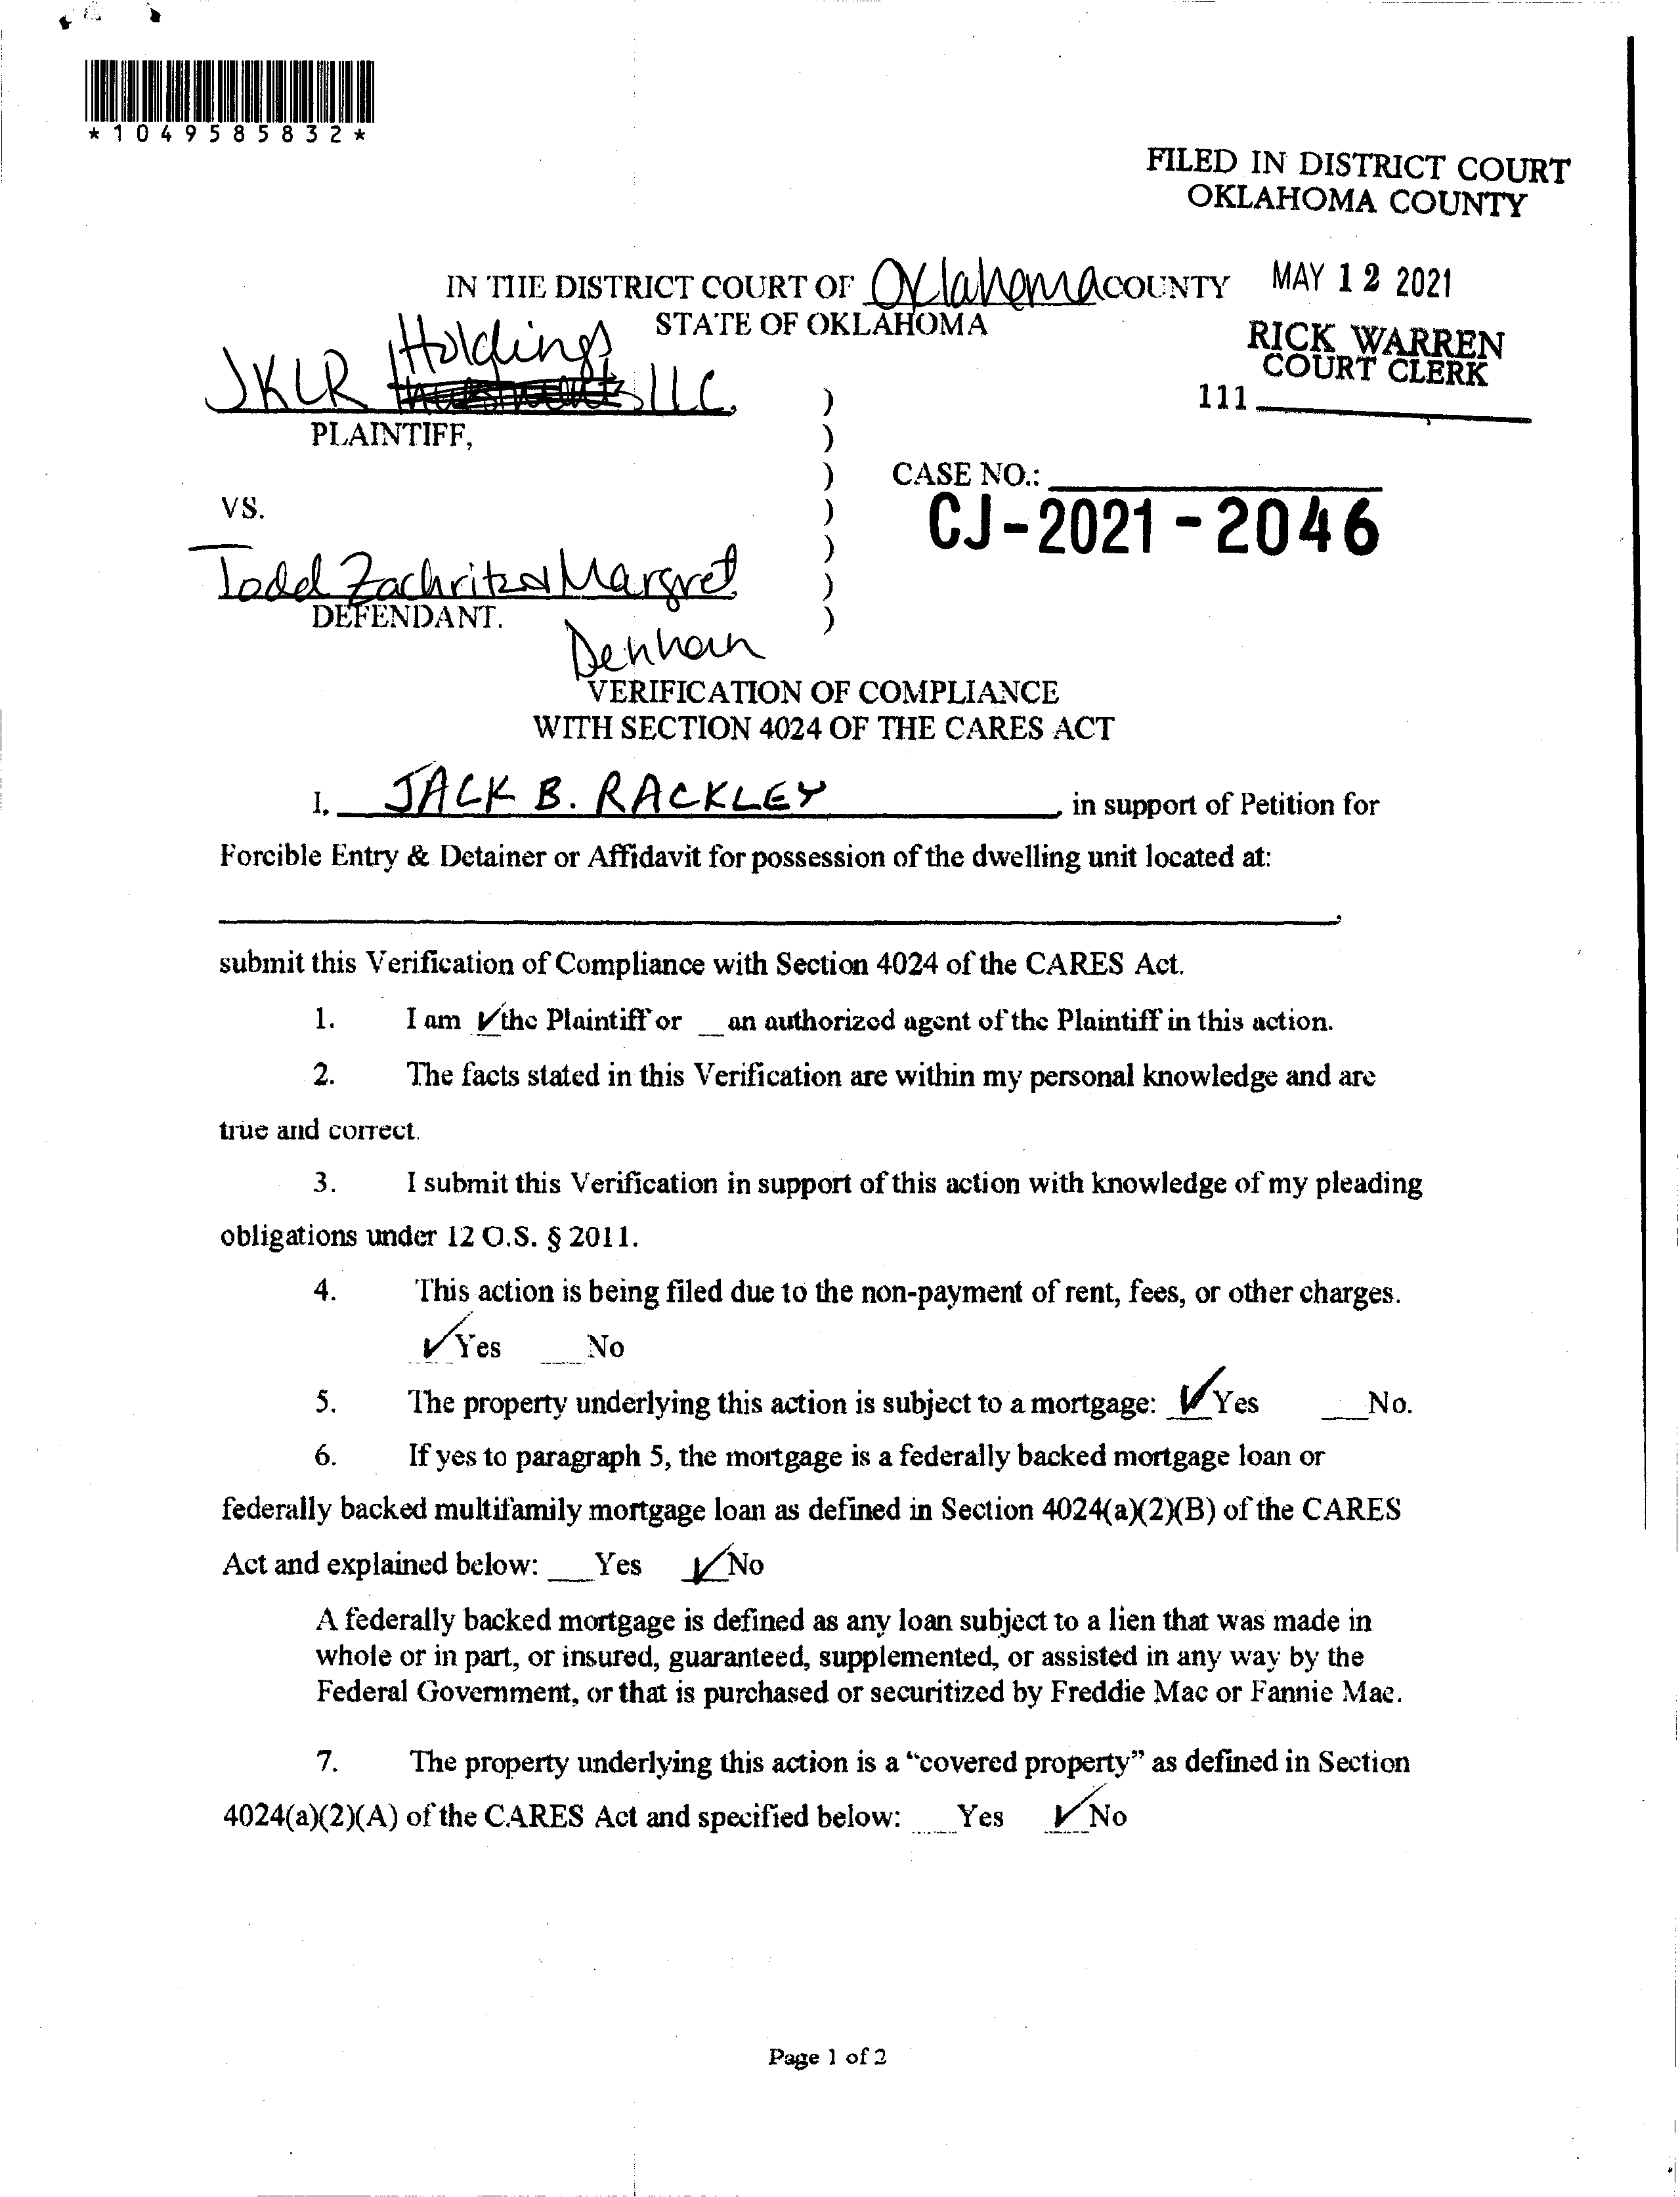 *1049585832*
FILED IN DISTRICT COURT
OKLAHOMA COUNTY
MAY 12 2021
RICK WARREN
COURT CLERK
111
IN THE DISTRICT COURT OF Oklahoma COUNTY
STATE OF OKLAHOMA
JKLR Holdings LLC.
PLAINTIFF,
VS.
)
)
)
)
)
)
)
CASE NO.:
CJ-2021-2046
Todd Zachritz & Margret
DEFENDANT.
Denham
VERIFICATION OF COMPLIANCE
WITH SECTION 4024 OF THE CARES ACT
I, JACK B. RACKLEY, in support of Petition for
Forcible Entry & Detainer or Affidavit for possession of the dwelling unit located at:
,
submit this Verification of Compliance with Section 4024 of the CARES Act.
1. I am ✓ the Plaintiff or __ an authorized agent of the Plaintiff in this action.
2. The facts stated in this Verification are within my personal knowledge and are
true and correct.
3. I submit this Verification in support of this action with knowledge of my pleading
obligations under 12 O.S. § 2011.
4. This action is being filed due to the non-payment of rent, fees, or other charges.
✓ Yes ___ No
5. The property underlying this action is subject to a mortgage: ✓ Yes ___ No.
6. If yes to paragraph 5, the mortgage is a federally backed mortgage loan or
federally backed multifamily mortgage loan as defined in Section 4024(a)(2)(B) of the CARES
Act and explained below: ___ Yes ✓ No
A federally backed mortgage is defined as any loan subject to a lien that was made in
whole or in part, or insured, guaranteed, supplemented, or assisted in any way by the
Federal Government, or that is purchased or securitized by Freddie Mac or Fannie Mae.
7. The property underlying this action is a “covered property” as defined in Section
4024(a)(2)(A) of the CARES Act and specified below: ___ Yes ✓ No
Page 1 of 2